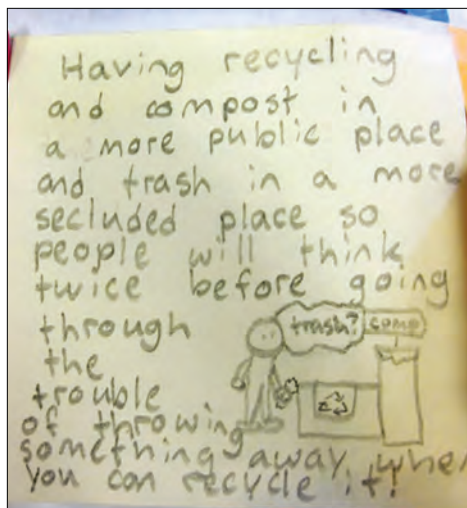 Having recycling
and compost in
a more public place
and trash in a more
secluded place so
people will think
twice before going
through
trash? comp
the
trouble
of throwing
something away when
you can recycle it!